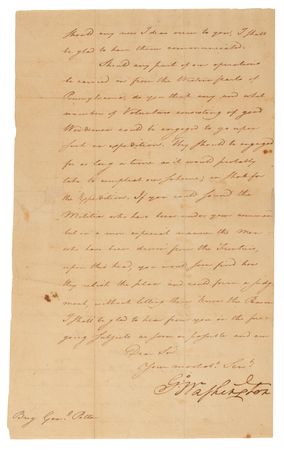 Should any new Ideas occur to you, I shall
be glad to have them communicated.
Should any part of our operations
be carried on from the Western parts of
Pennsylvania, do you think any and what
number of Volunteers consisting of good
Woodsmen could be engaged to go upon
such an expedition. They should be engaged
for as long a time as it would probably
take to compleat our scheme, or state for
the Expedition. If you could sound the
Militia who have been under your command
but in a more especial manner the Men
who have been driven from the Frontier,
upon this head, you would soon find how
they relish the plan and could form a judg
ment, without letting them know the Reason
I shall be glad to hear from you on the fore
going subjects as soon as possible and am
Dear Sir
Your most obt. Servt.
Go Washington
Brig Genl. Potter